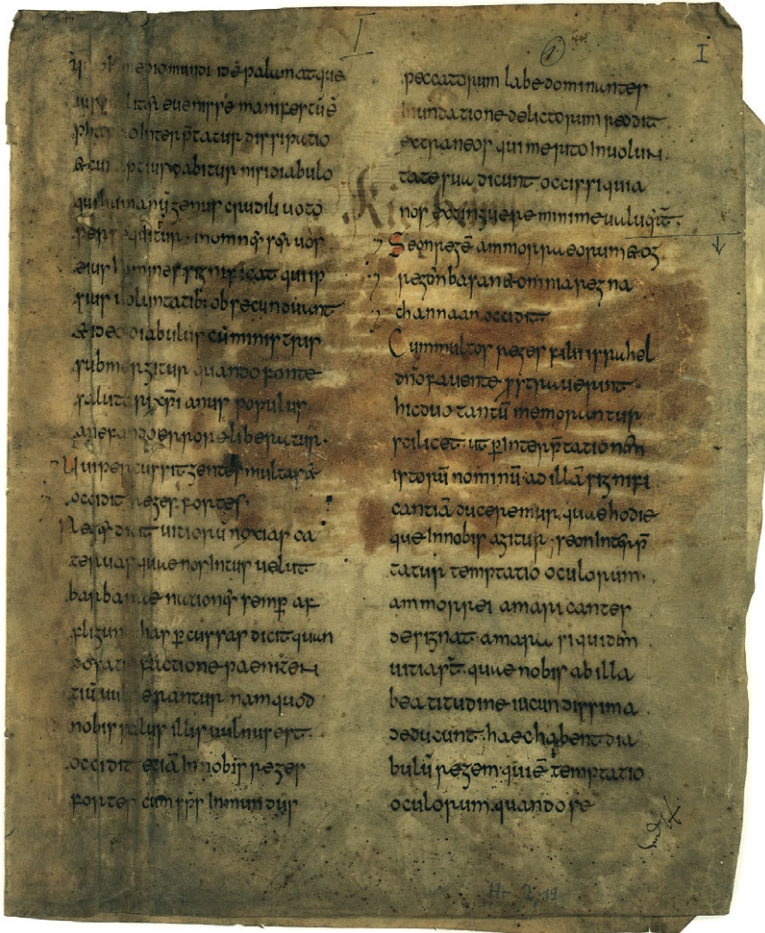 medio mundi id ē palam atque
euenisse manifestū ē
interp̄tatur dissipatio
dabitur nisi diabulo
genus crudili uoto
eius nomine significat qui ip
sius uoluntatib: obsecundant
& ideo diabulus cū ministris
submergitur quando fonte
salutari xp̄ianus populus
a nefando errore liberatur.
Qui percussit gentes multas &
occidit reges fortes.
dicit uitiorū noxias ca
teruas quae nos intus uelut
barbarae semp af
fligunt has p̄cussas dicit quan
do satisfactione paeniten
tiū uulnerantur nam quod
nobis salus illis uulnus est.
occidit etiā in nobis reges
fortes cum sp̄s inmundus
I
I
peccatorum labe dominanter
inundatione delictorum reddit
extraneos qui merito inuolun
tate sua dicunt occissi quia
nos extinguere minime
Seon regē ammorraeorum & og
regem basan & omnia regna
channaan occidit
Cum multos reges filii israhel
dn̄o fauente prostrauerunt
hic duo tantū memorantur
scilicet ut p̄ interp̄tationem
istorū nominū ad illā signifi
cantiā duceremur quae hodie
que in nobis agitur, seon interp̄
tatur temptatio oculorum.
ammorrei amaricantes
designat amara siquidem
uitia st̄ quae nobis ab illa
beatitudine iucundissima
deducunt. haec habent dia
bulū regem qui ē temptatio
oculorum quando se
H- 2, 19